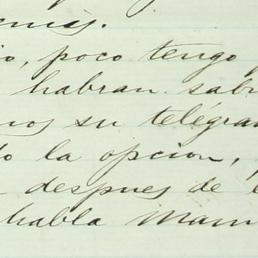 io, poco tengo
habran sab
nos su telégra
do la opcion,
despues de
habla Mam